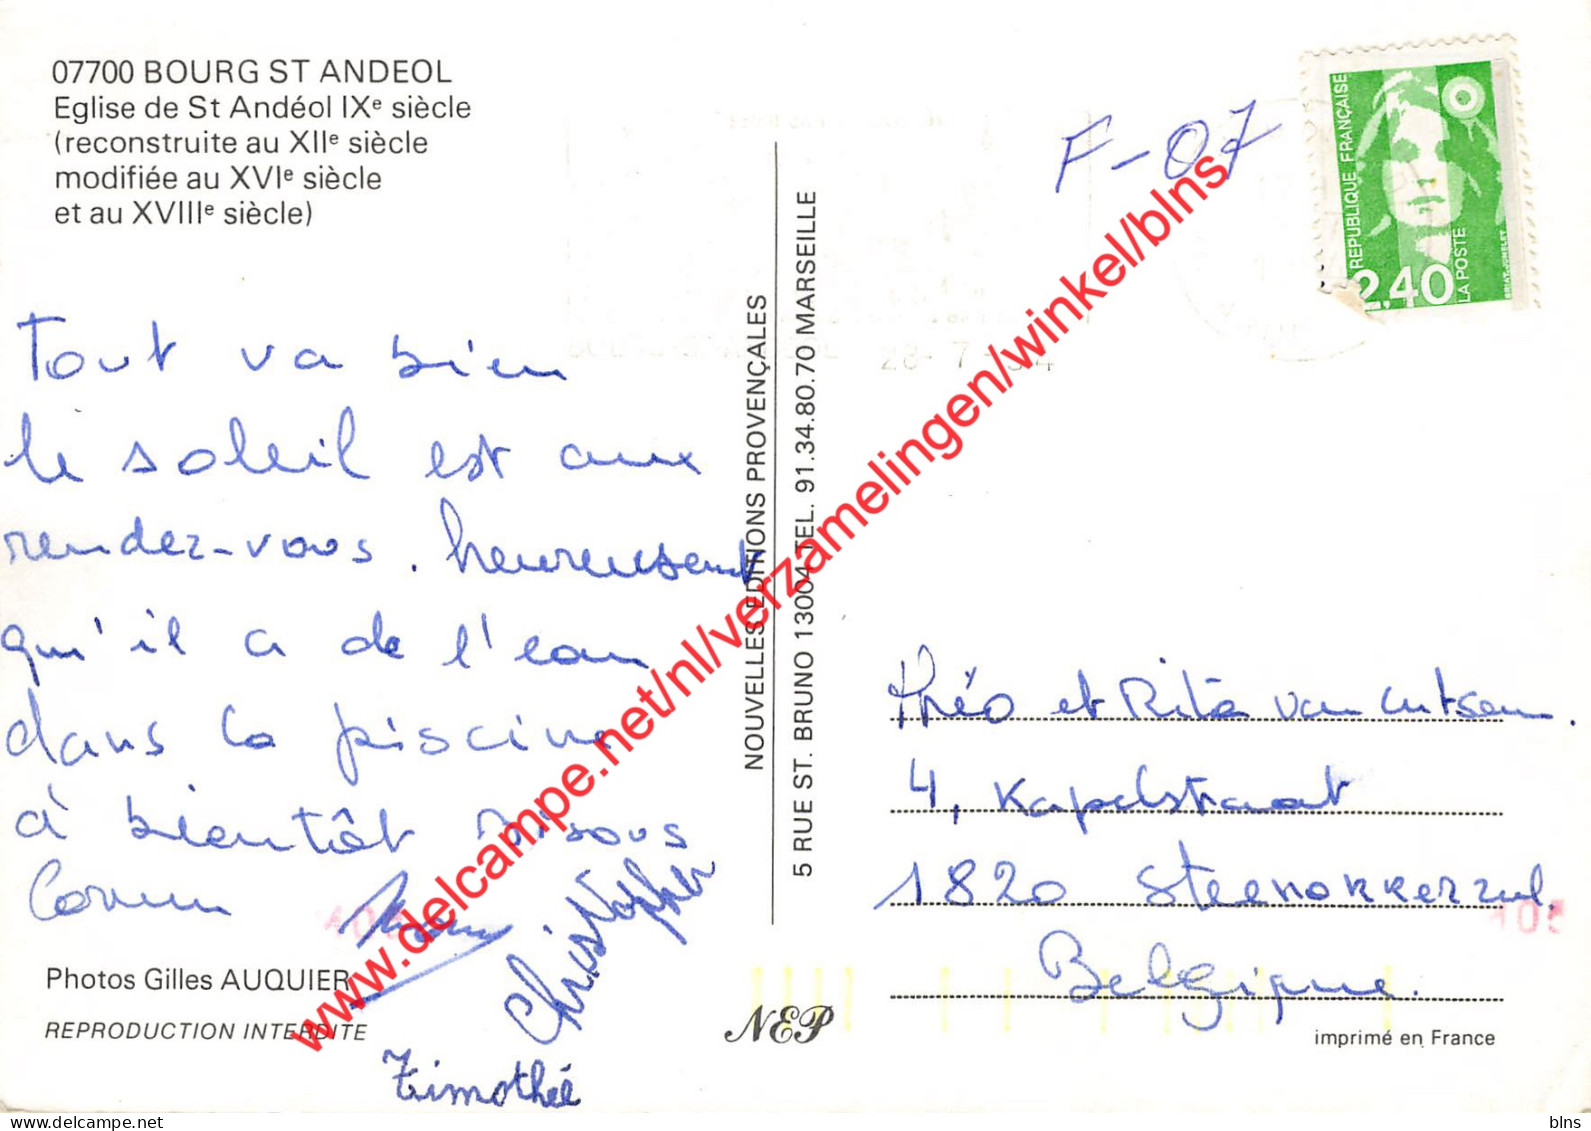 07700 BOURG ST ANDEOL
Eglise de St Andéol IXe siècle
(reconstruite au XIIe siècle
modifiée au XVIe siècle
et au XVIIIe siècle)
Tout va bien
le soleil est aux
rendez-vous. heureusement
qu'il a de l'eau
dans la piscine
à bientôt
Christopher
Timothée
Photos Gilles AUQUIER
REPRODUCTION INTERDITE
NOUVELLES EDITIONS PROVENÇALES
5 RUE ST. BRUNO 13004 TEL. 91.34.80.70 MARSEILLE
NEP
F-07
REPUBLIQUE FRANÇAISE
2,40
LA POSTE
BRIAT-JUMELET
28-7-
Théo et Rita van
4, Kapelstraat
1820 Steenokkerzeel.
Belgique.
imprimé en France
www.delcampe.net/nl/verzamelingen/winkel/blns
blns